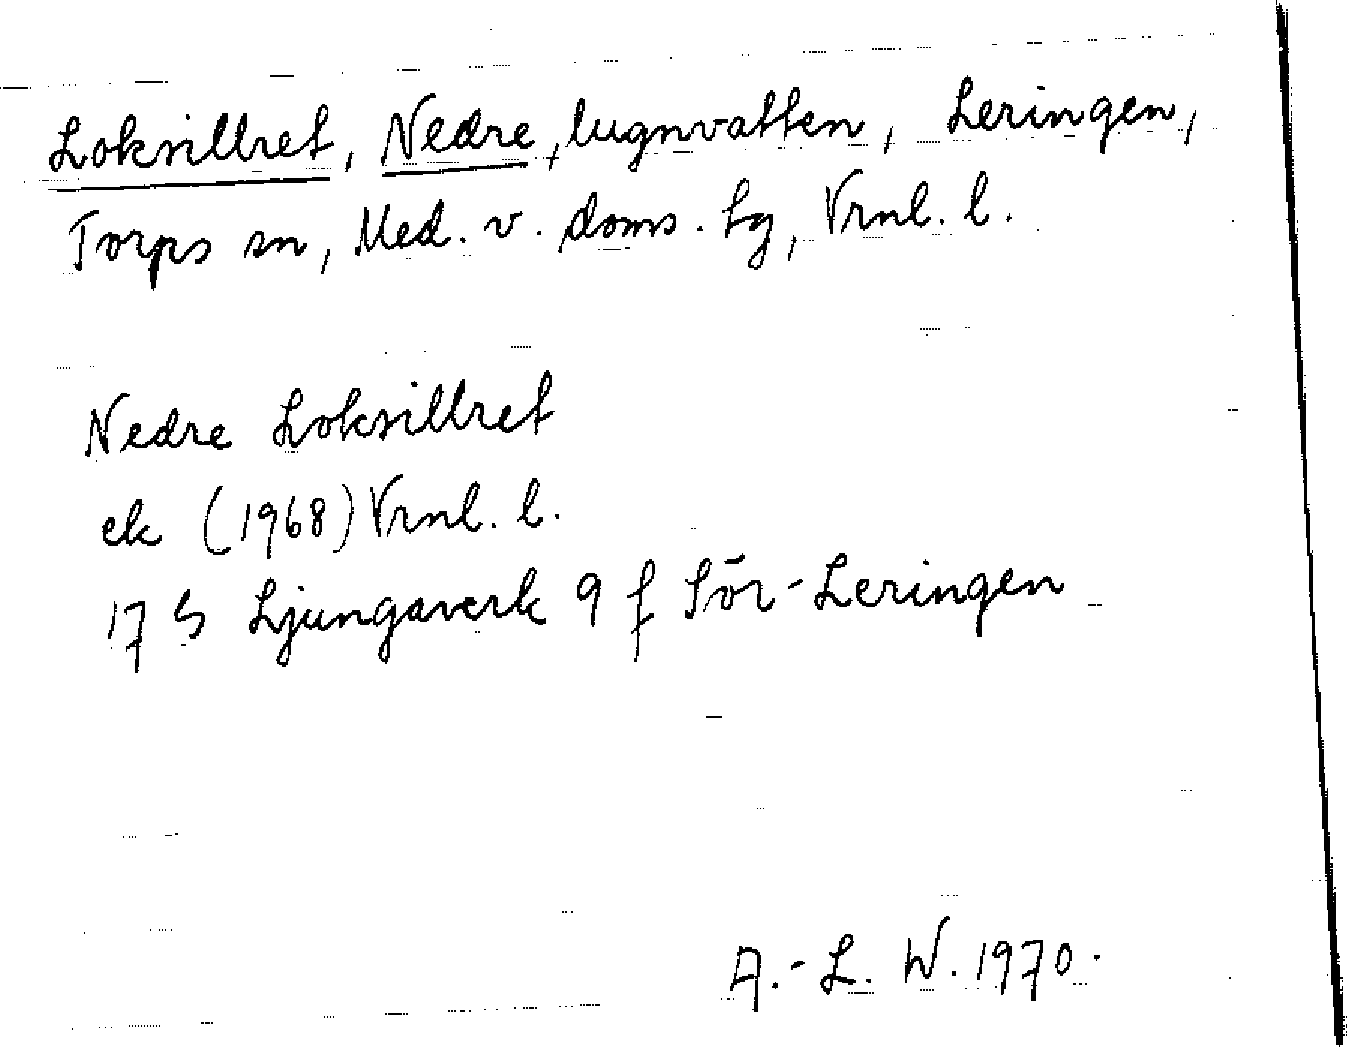 Loksillret, Nedre, lugnvatten, Leringen,
Torps sn, Med. v. doms. tg, Vrnl. l.
Nedre Loksillret
ek (1968) Vrnl. l.
17 G Ljungaverk 9 f Sör-Leringen
A.-L. W. 1970.